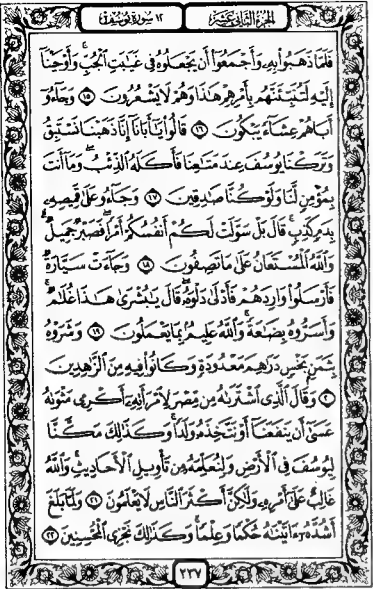 الجزء الثاني عشر ١٢ سورة يوسف
فَلَمَّا ذَهَبُوا۟ بِهِۦ وَأَجْمَعُوٓا۟ أَن يَجْعَلُوهُ فِى غَيَٰبَتِ ٱلْجُبِّ ۚ وَأَوْحَيْنَآ
إِلَيْهِ لَتُنَبِّئَنَّهُم بِأَمْرِهِمْ هَٰذَا وَهُمْ لَا يَشْعُرُونَ ١٥ وَجَآءُوٓ
أَبَاهُمْ عِشَآءً يَبْكُونَ ١٦ قَالُوا۟ يَٰٓأَبَانَآ إِنَّا ذَهَبْنَا نَسْتَبِقُ
وَتَرَكْنَا يُوسُفَ عِندَ مَتَٰعِنَا فَأَكَلَهُ ٱلذِّئْبُ ۖ وَمَآ أَنتَ
بِمُؤْمِنٍ لَّنَا وَلَوْ كُنَّا صَٰدِقِينَ ١٧ وَجَآءُو عَلَىٰ قَمِيصِهِۦ
بِدَمٍ كَذِبٍ ۚ قَالَ بَلْ سَوَّلَتْ لَكُمْ أَنفُسُكُمْ أَمْرًا ۖ فَصَبْرٌ جَمِيلٌ ۖ
وَٱللَّهُ ٱلْمُسْتَعَانُ عَلَىٰ مَا تَصِفُونَ ١٨ وَجَآءَتْ سَيَّارَةٌ
فَأَرْسَلُوا۟ وَارِدَهُمْ فَأَدْلَىٰ دَلْوَهُۥ ۖ قَالَ يَٰبُشْرَىٰ هَٰذَا غُلَٰمٌ ۚ
وَأَسَرُّوهُ بِضَٰعَةً ۚ وَٱللَّهُ عَلِيمٌۢ بِمَا يَعْمَلُونَ ١٩ وَشَرَوْهُ
بِثَمَنٍۭ بَخْسٍ دَرَٰهِمَ مَعْدُودَةٍ وَكَانُوا۟ فِيهِ مِنَ ٱلزَّٰهِدِينَ
٢٠ وَقَالَ ٱلَّذِى ٱشْتَرَىٰهُ مِن مِّصْرَ لِٱمْرَأَتِهِۦٓ أَكْرِمِى مَثْوَىٰهُ
عَسَىٰٓ أَن يَنفَعَنَآ أَوْ نَتَّخِذَهُۥ وَلَدًا ۚ وَكَذَٰلِكَ مَكَّنَّا
لِيُوسُفَ فِى ٱلْأَرْضِ وَلِنُعَلِّمَهُۥ مِن تَأْوِيلِ ٱلْأَحَادِيثِ ۚ وَٱللَّهُ
غَالِبٌ عَلَىٰٓ أَمْرِهِۦ وَلَٰكِنَّ أَكْثَرَ ٱلنَّاسِ لَا يَعْلَمُونَ ٢١ وَلَمَّا بَلَغَ
أَشُدَّهُۥٓ ءَاتَيْنَٰهُ حُكْمًا وَعِلْمًا ۚ وَكَذَٰلِكَ نَجْزِى ٱلْمُحْسِنِينَ ٢٢
٢٣٧